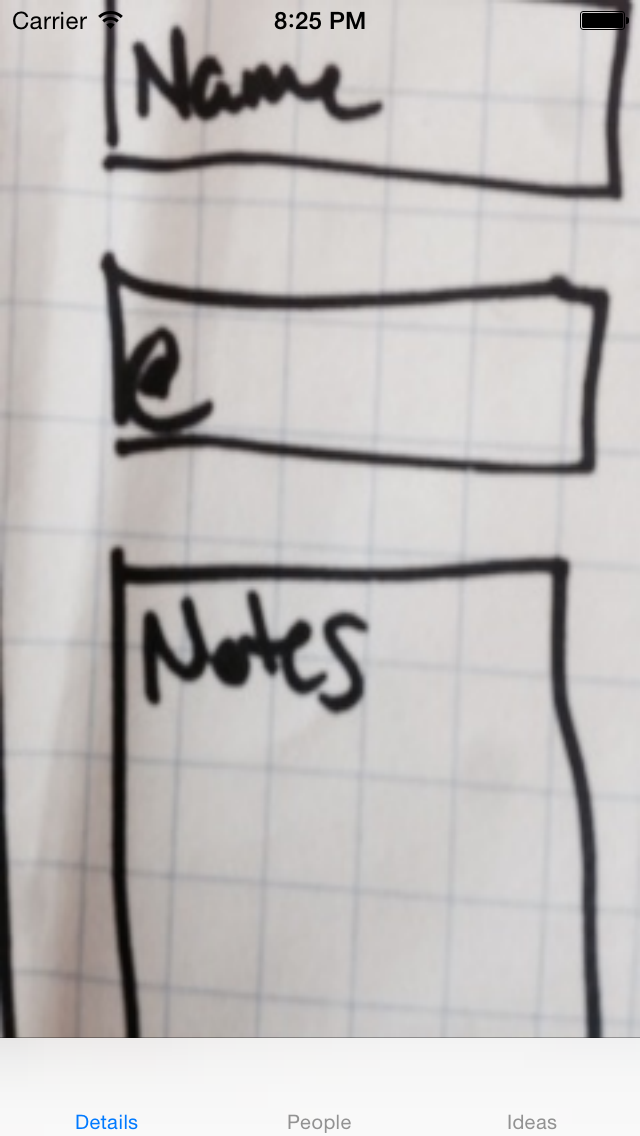 Carrier 8:25 PM
Name
@
Notes
Details People Ideas